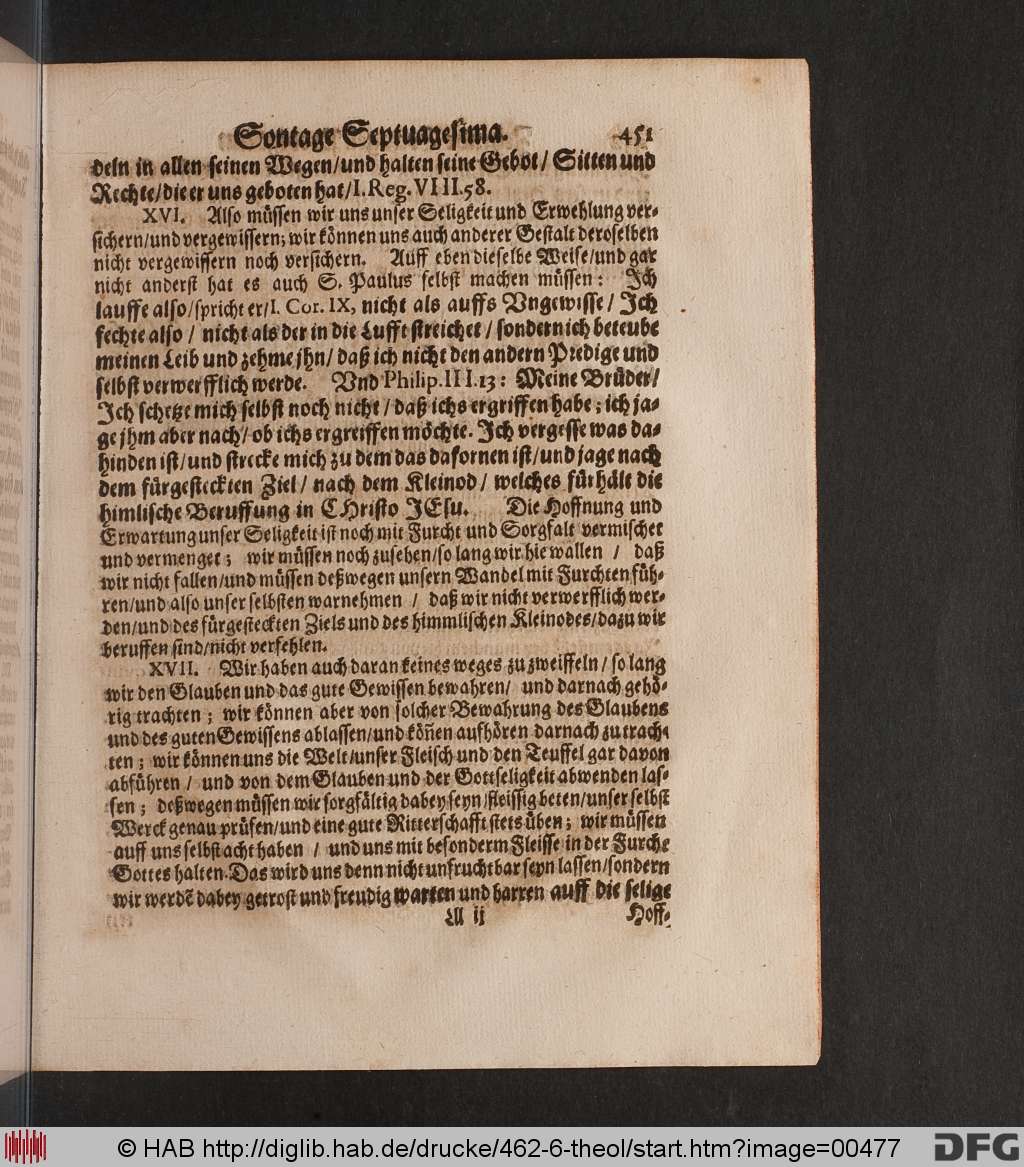 Sontage Septuagesima. 451
deln in allen seinen Wegen/und halten seine Gebot/ Sitten und
Rechte/die er uns geboten hat/I. Reg. VIII. 58.
XVI. Also müssen wir uns unser Seligkeit und Erwehlung ver-
sichern/und vergewissern; wir können uns auch anderer Gestalt deroselben
nicht vergewissern noch versichern. Auff eben dieselbe Weise/und gar
nicht anderst hat es auch S. Paulus selbst machen müssen: Ich
lauffe also/spricht er/I. Cor. IX, nicht als auffs Vngewisse/ Ich
fechte also / nicht als der in die Lufft streichet / sondern ich beteube
meinen Leib und zehme jhn/ daß ich nicht den andern Predige und
selbst verwerfflich werde. Vnd Philip. III. 13: Meine Brüder/
Ich schetze mich selbst noch nicht / daß ichs ergriffen habe; ich ja-
ge jhm aber nach/ ob ichs ergreiffen möchte. Ich vergesse was da-
hinden ist/und strecke mich zu dem das dafornen ist/und jage nach
dem fürgesteckten Ziel / nach dem Kleinod / welches fürhält die
himlische Beruffung in CHristo JEsu. Die Hoffnung und
Erwartung unser Seligkeit ist noch mit Furcht und Sorgfalt vermischet
und vermenget; wir müssen noch zusehen/so lang wir hie wallen / daß
wir nicht fallen/und müssen deßwegen unsern Wandel mit Furchten füh-
ren/und also unser selbsten warnehmen / daß wir nicht verwerfflich wer-
den/und des fürgesteckten Ziels und des himmlischen Kleinodes/dazu wir
beruffen sind/nicht verfehlen.
XVII. Wir haben auch daran keines weges zu zweiffeln / so lang
wir den Glauben und das gute Gewissen bewahren/ und darnach gehö-
rig trachten; wir können aber von solcher Bewahrung des Glaubens
und des guten Gewissens ablassen/und köñen aufhören darnach zu trach-
ten; wir können uns die Welt/unser Fleisch und den Teuffel gar davon
abführen / und von dem Glauben und der Gottseligkeit abwenden las-
sen; deßwegen müssen wir sorgfältig dabey seyn/fleissig beten/unser selbst
Werck genau prüfen/und eine gute Ritterschafft stets üben; wir müssen
auff uns selbst acht haben / und uns mit besonderm Fleisse in der Furcht
Gottes halten. Das wird uns denn nicht unfruchtbar seyn lassen/sondern
wir werdẽ dabey getrost und freudig warten und harren auff die selige
Lll ij Hoff-
© HAB http://diglib.hab.de/drucke/462-6-theol/start.htm?image=00477 DFG